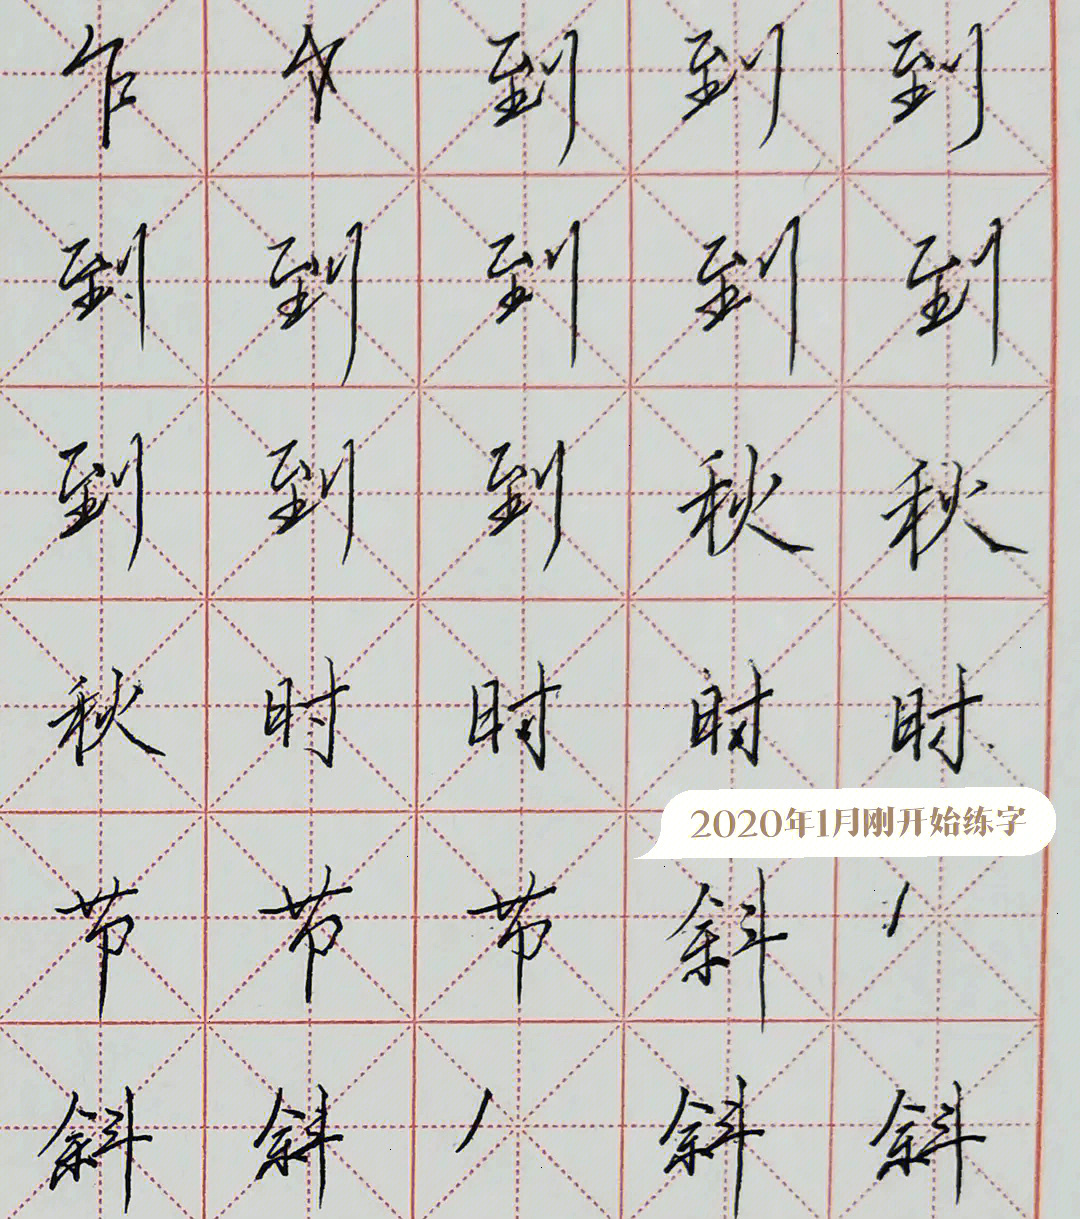 乍 到 到 到
到 到 到 到 到
到 到 到 秋 秋
秋 时 时 时 时
2020年1月刚开始练字
节 节 节 斜
斜 斜 斜 斜